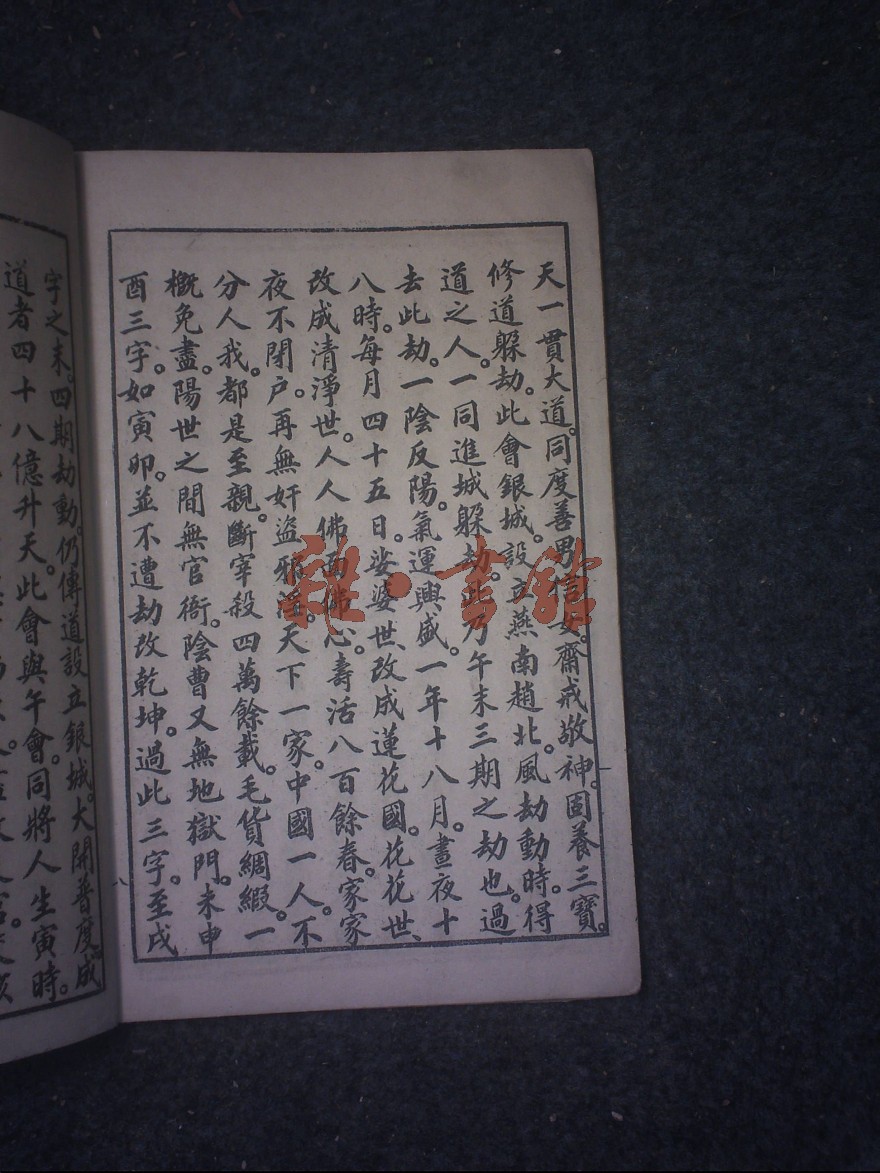 天一貫大道。同度善男信女。齋戒敬神。固養三寶。
修道躲劫。此會銀城。設立燕南趙北。風劫動時。得
道之人。一同進城躲劫。此乃午末三期之劫也。過
去此劫。一陰反陽。氣運興盛。一年十八月。晝夜十
八時。每月四十五日。娑婆世、改成蓮花國。花花世、
改成清淨世。人人佛面佛心。壽活八百餘春。家家
夜不閉户。再無奸盜邪淫。天下一家。中國一人。不
分人我。都是至親。斷宰殺四萬餘載。毛貨綢緞。一
概免盡。陽世之間無官衙。陰曹又無地獄門。未申
酉三字。如寅卯。並不遭劫改乾坤。過此三字。至戌
八
字之末。四期劫動。仍傳道設立銀城。大開普度。成
道者四十八億升天。此會與午會。同將人生寅時。
雜·書館